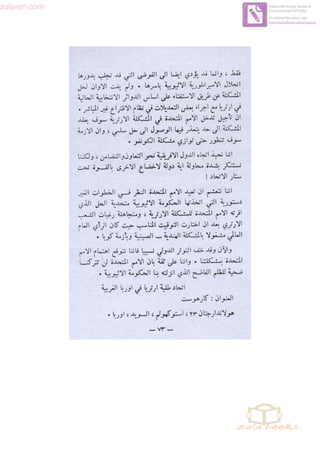 zula-eri.com
فقط ، وانما قد يؤدي ايضا الى الفوضى التي قد تجلب بدورها
انحلال الامبراطورية الاثيوبية باسرها . ولم يفت الاوان لحل
المشكلة عن طريق الاستفتاء على اساس الدوائر الانتخابية الحالية
في ارتريا مع اجراء بعض التعديلات في نظام الاقتراع غير المباشر .
ان تأجيل تدخل الامم المتحدة في المشكلة الارترية سوف يعقد
المشكلة الى حد يتعذر فيها الوصول الى حل سلمي ، وان الازمة
سوف تتطور حتى توازي مشكلة الكونغو .
اننا نحبذ اتجاه الدول الافريقية نحو التعاون والتضامن ، ولكننا
نستنكر بشدة محاولة اية دولة لاخضاع الاخرى بالقوة تحت
ستار الاتحاد !
اننا نتعشم ان تعيد الامم المتحدة النظر في الخطوات الغير
دستورية التي اتخذتها الحكومة الاثيوبية متحدية الحل الذي
اقرته الامم المتحدة للمشكلة الارترية ، ومتجاهلة رغبات الشعب
الارتري بعد ان اختارت التوقيت المناسب حيث كان الرأي العام
العالمي مشغولا بالمشكلة الهندية ـ الصينية وبأزمة كوبا .
والآن وقد خف التوتر الدولي نسبيا فاننا نتوقع اهتمام الامم
المتحدة بمشكلتنا . واننا على ثقة بان الامم المتحدة لن تتركنا
ضحية للظلم الفاضح الذي انزلته بنا الحكومة الاثيوبية .
اتحاد طلبة ارتريا في اوربا الغربية
العنوان : كارهوست
هولاندارجتان ٢٣ ، استوكهولم ، السويد ، اوربا .
ـ ٧٣ ـ
zula books